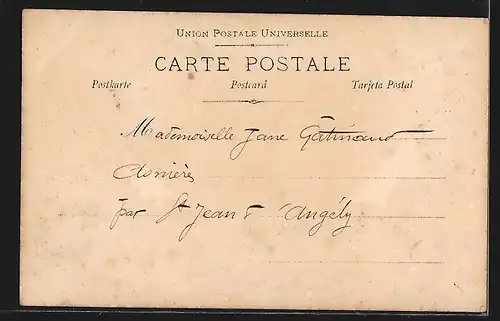 UNION POSTALE UNIVERSELLE
CARTE POSTALE
Postkarte Postcard Tarjeta Postal
Mademoiselle Jane
Asnières
par St Jean d'Angély